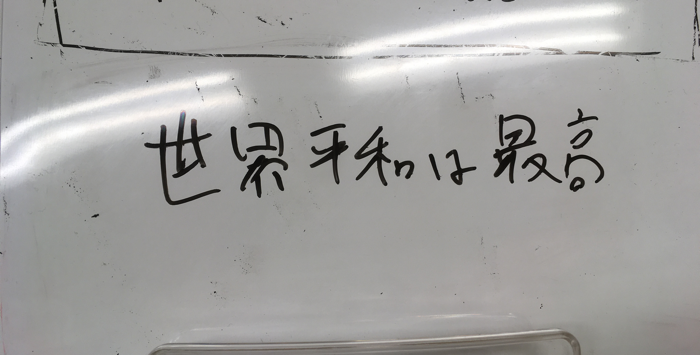 世界平和は最高